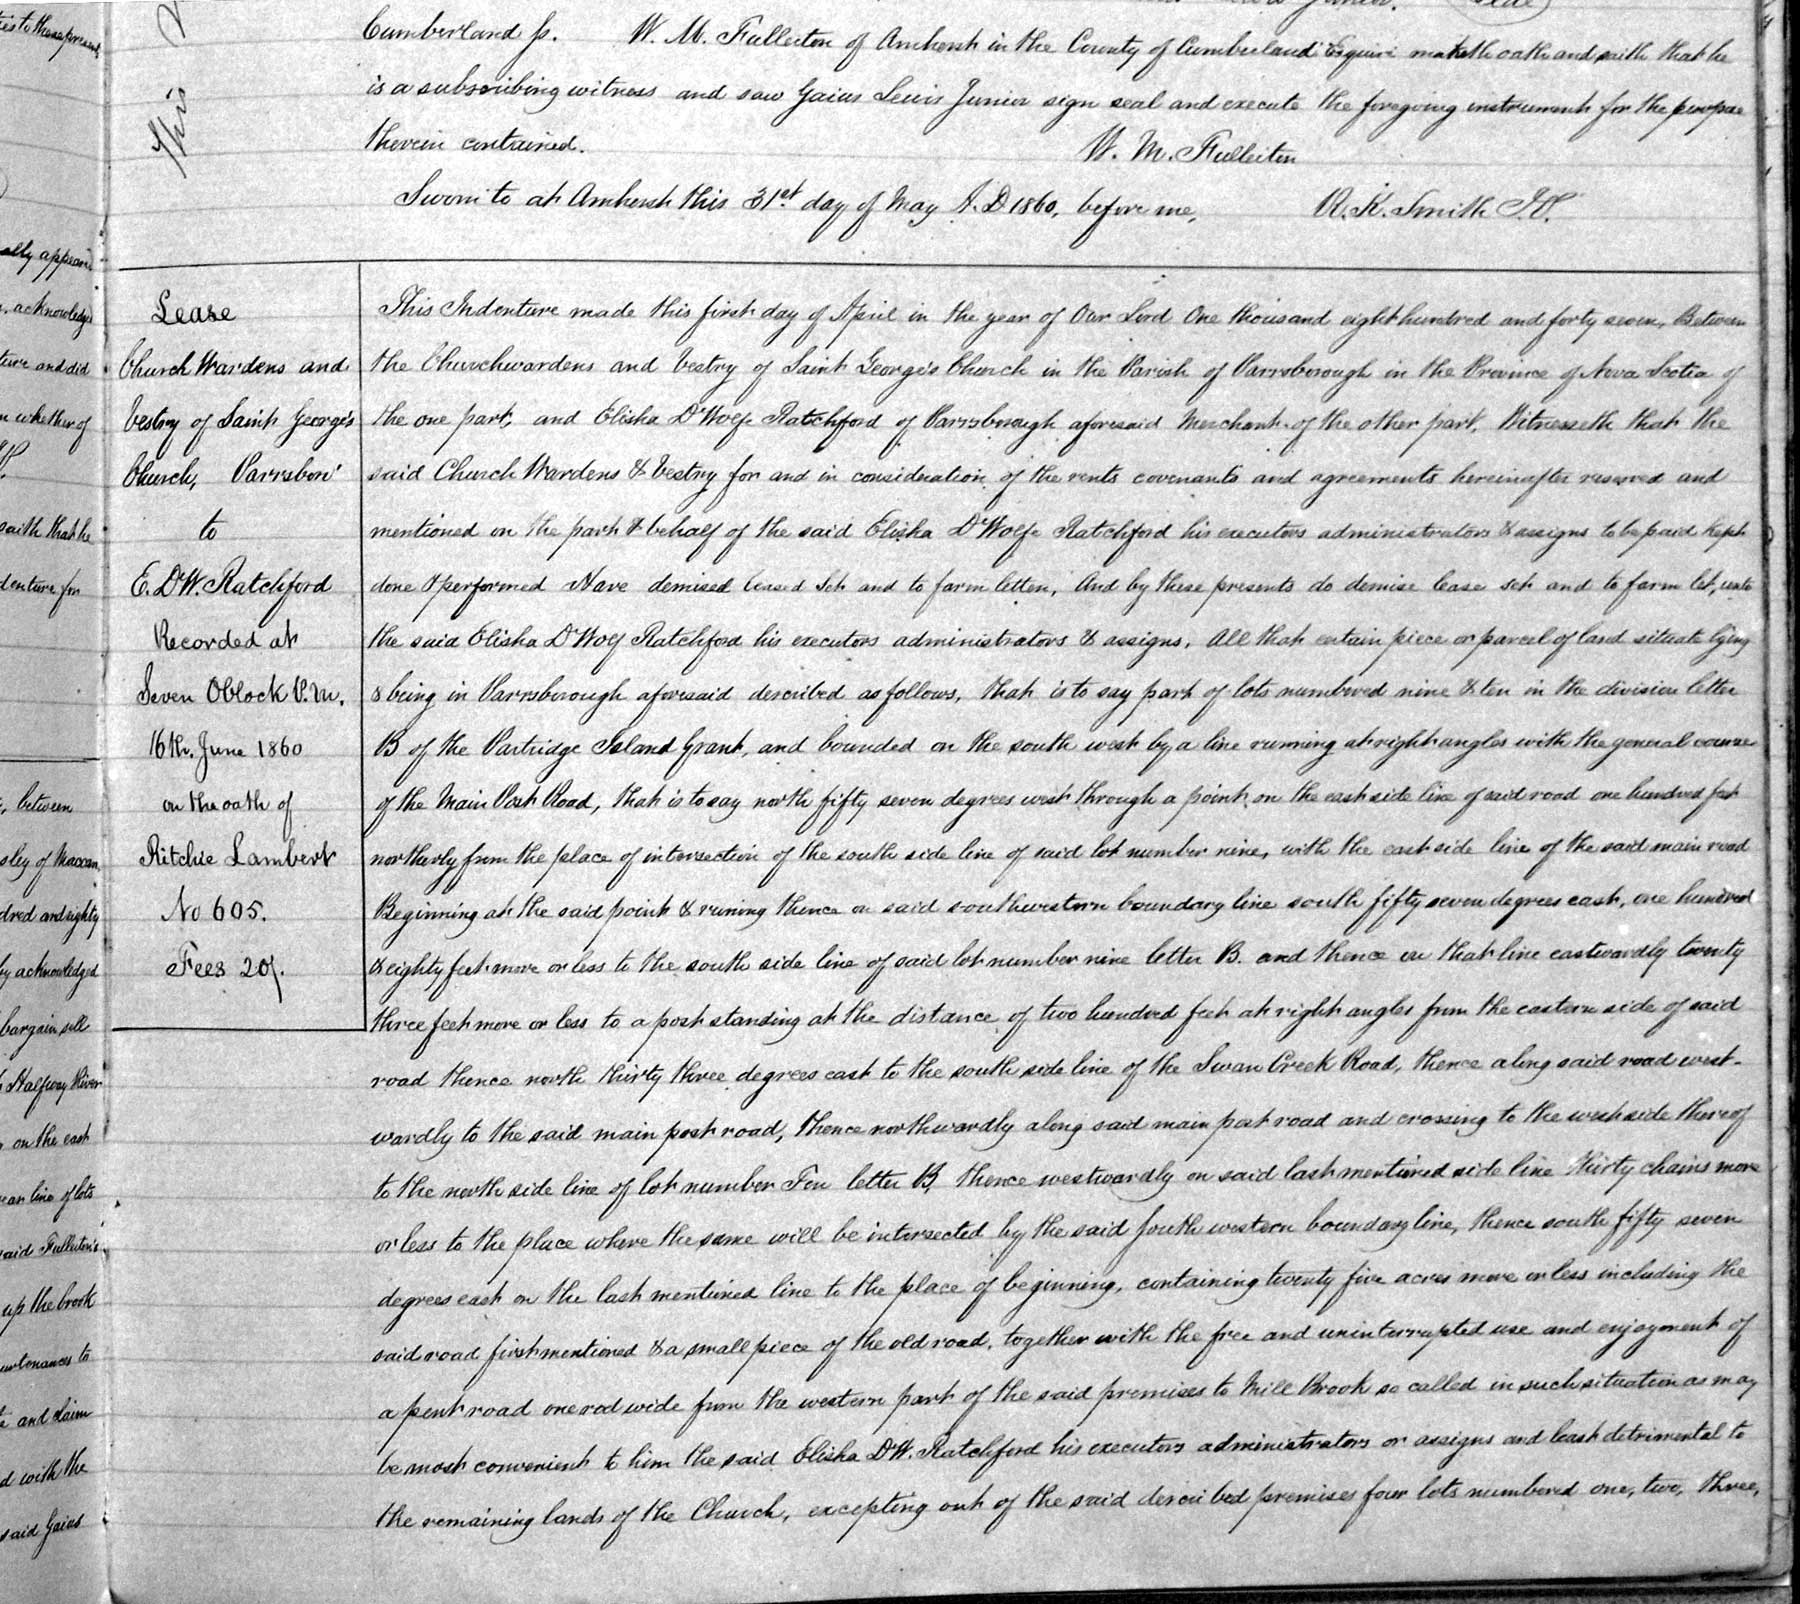 Cumberland ss. W. M. Fullerton of Amherst in the County of Cumberland Esquire maketh oath and saith that he
is a subscribing witness and saw Gaius Lewis Junior sign seal and execute the foregoing instrument for the purpose
therein contained. W. M. Fullerton
Sworn to at Amherst this 31st day of May A.D 1860, before me, R. K. Smith J.P.
Lease
Church Wardens and
Vestry of Saint George's
Church, Parrsboro'
to
E. D'W. Ratchford
Recorded at
Seven OClock P.M.
16th. June 1860
on the oath of
Ritchie Lambert
No 605.
Fees 20/.
This Indenture made this first day of April in the year of Our Lord One thousand eight hundred and forty seven, Between
the Churchwardens and Vestry of Saint George's Church in the Parish of Parrsborough in the Province of Nova Scotia of
the one part, and Elisha D'Wolfe Ratchford of Parrsborough aforesaid Merchant of the other part, Witnesseth that the
said Church Wardens & Vestry for and in consideration of the rents covenants and agreements hereinafter reserved and
mentioned on the part & behalf of the said Elisha D'Wolfe Ratchford his executors administrators & assigns to be paid kept
done & performed Have demised leased set and to farm letten, And by these presents do demise lease set and to farm let, unto
the said Elisha D'Wolf Ratchford his executors administrators & assigns, All that certain piece or parcel of land situate lying
& being in Parrsborough aforesaid described as follows, that is to say part of lots numbered nine & ten in the division letter
B of the Partridge Island Grant, and bounded on the south west by a line running at right angles with the general course
of the Main Post Road, that is to say north fifty seven degrees west through a point on the east side line of said road one hundred feet
northerly from the place of intersection of the south side line of said lot number nine, with the east side line of the said main road
Beginning at the said point & runing thence on said southwestern boundary line south fifty seven degrees east, one hundred
& eighty feet more or less to the south side line of said lot number nine letter B. and thence on that line eastwardly twenty
three feet more or less to a post standing at the distance of two hundred feet at right angles from the eastern side of said
road thence north thirty three degrees east to the south side line of the Swan Creek Road, thence along said road west-
wardly to the said main post road, thence northwardly along said main post road and crossing to the west side thereof
to the north side line of lot number Ten letter B, thence westwardly on said last mentioned side line thirty chains more
or less to the place where the same will be intersected by the said South western boundary line, thence south fifty seven
degrees east on the last mentioned line to the place of beginning, containing twenty five acres more or less including the
said road first mentioned & a small piece of the old road, together with the free and uninterrupted use and enjoyment of
a pent road one rod wide from the western part of the said premises to Mill Brook so called in such situation as may
be most convenient to him the said Elisha D'W. Ratchford his executors administrators or assigns and least detrimental to
the remaining lands of the Church, excepting out of the said described premises four lots numbered one, two, three,